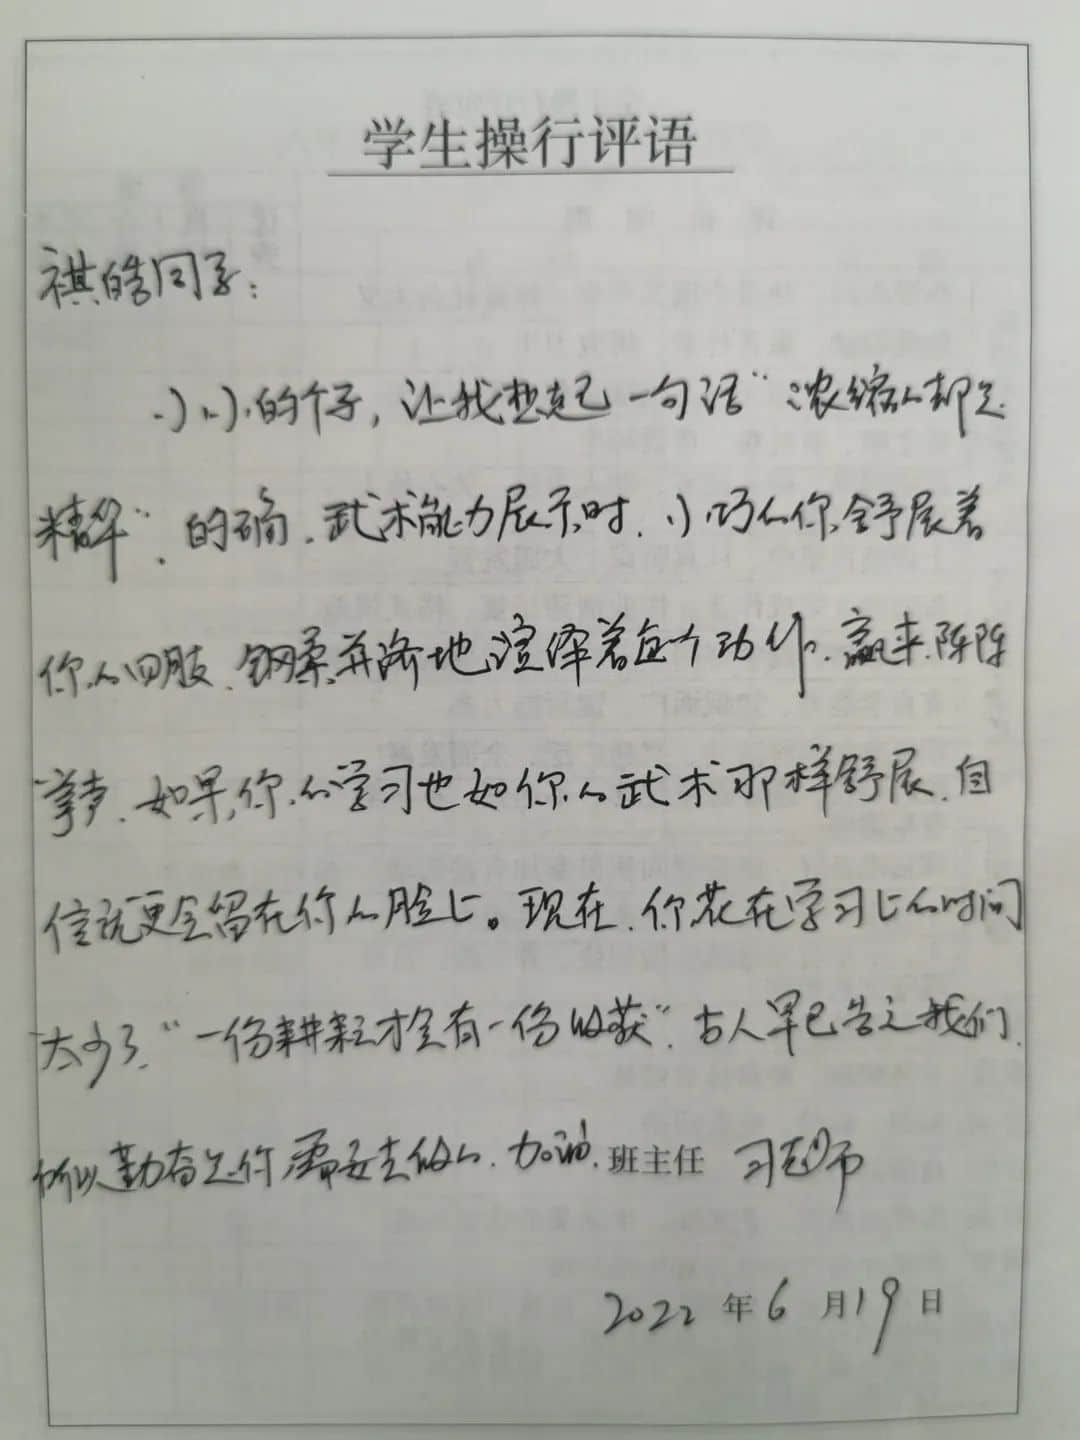 学生操行评语
祺皓同学：
小小的个子，让我想起一句话“浓缩的都是
精华”，的确，武术能力展示时，小巧的你舒展着
你的四肢，钢柔并济地渲绎着每个动作，赢来阵阵
掌声，如果，你的学习也如你的武术那样舒展，自
信就更会留在你的脸上。现在，你花在学习上的时间
太少了，“一份耕耘才会有一份收获”，古人早已告之我们，
所以勤奋是你需要去做的，加油，班主任 习老师
2022 年 6 月 19 日